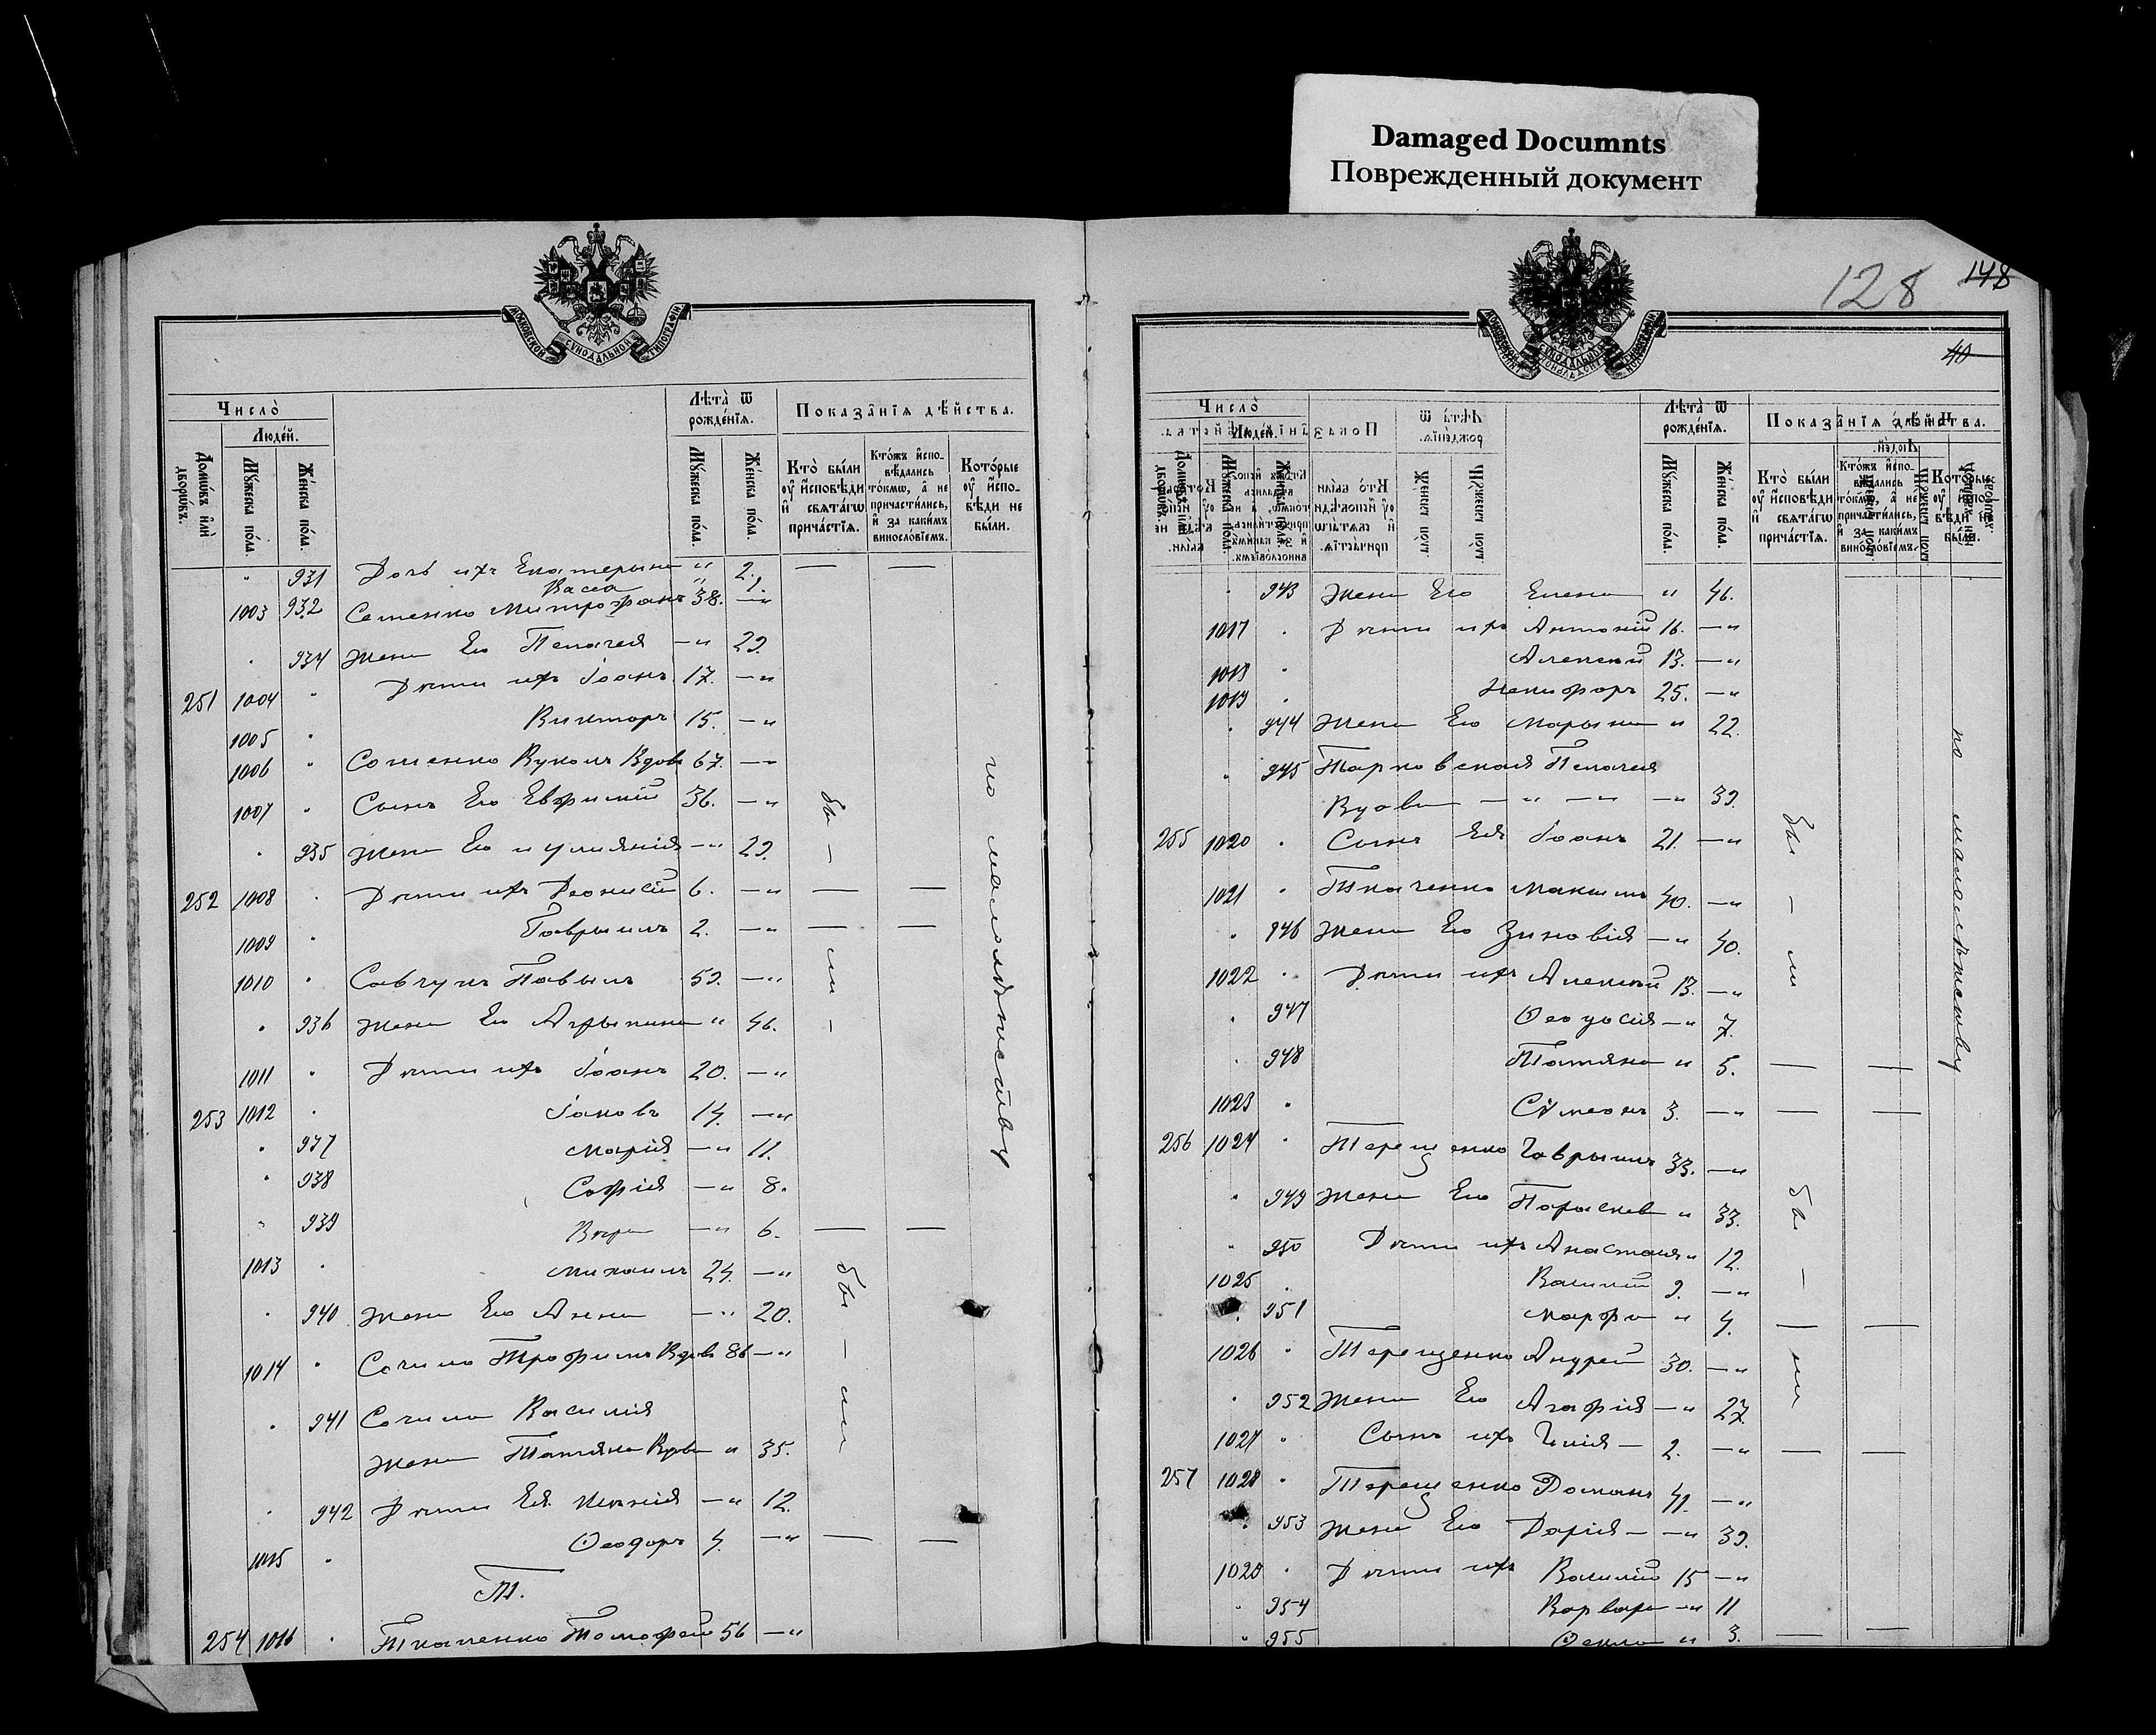 Damaged Documnts
Поврежденный документ
МОСКОВСКОЙ СѴНОДАЛЬНОЙ ТИПОГРАФІИ.
Число̀
Людей.
Домѡвъ илѝ дворѡвъ.
Мꙋжеска по́ла.
Же́нска по́ла.
Лѣта̀ ѿ рожде́нїѧ.
Мꙋжеска по́ла.
Же́нска по́ла.
Показа̂нїѧ дѣ́йства.
Кто̀ бы́ли оу҆ и҆сповѣди и҆ свѧта́гѡ прича́стїѧ.
Кто́жъ и҆спо-вѣдались то́кмѡ, а҆ не причасти́лись, и҆ за каки́мъ винослові́емъ.
Кото́рые оу҆ и҆спо-вѣди не бы́ли.
" 931 Дочь ихъ Екатерына " 2.
Васса " 1.
1003 932 Семенко Митрофанъ 38. —"
" 934 Жена Его Пелагея —" 29.
251 1004 " Дѣти ихъ Іоанъ 17. —"
1005 " Викторъ 15. —"
1006 " Сотенко Вуколъ Вдов 67. —"
1007 " Сынъ Его Евфимій 36. —"
" 935 Жена Его Иулиянія —" 29.
252 1008 " Дѣти ихъ Деонисій 6. —" — —
1009 " Гаврыилъ 2. —" — —
1010 " Савчукъ Павылъ 59. —"
" 936 Жена Его Агрыпина " 46.
1011 " Дѣти ихъ Іоанъ 20. —"
253 1012 " Іаковъ 14. —"
" 937 Марія —" 11.
" 938 Софія —" 8.
" 939 Вѣра —" 6. — —
1013 " Михаилъ 24. —"
" 940 Жена Его Анна —" 20.
1014 " Сачило Трофимъ Вдов 86 —"
" 941 Сачило Василія
Жена Татіяна Вдова " 35.
" 942 Дѣти Ея Ксенія —" 12.
1015 " Ѳеодоръ 4. —" — —
Т.
254 1016 " Ткаченко Тимофей 56 —"
бы — ли —
бы — ли
по малолѣтству
128
148
40
МОСКОВСКОЙ СѴНОДАЛЬНОЙ ТИПОГРАФІИ.
Число̀
Людей.
Домѡвъ илѝ дворѡвъ.
Мꙋжеска по́ла.
Же́нска по́ла.
Лѣта̀ ѿ рожде́нїѧ.
Мꙋжеска по́ла.
Же́нска по́ла.
Показа̂нїѧ дѣ́йства.
Кто̀ бы́ли оу҆ и҆сповѣди и҆ свѧта́гѡ прича́стїѧ.
Кто́жъ и҆спо-вѣдались то́кмѡ, а҆ не причасти́лись, и҆ за каки́мъ винослові́емъ.
Кото́рые оу҆ и҆спо-вѣди не бы́ли.
" 943 Жена Его Елена " 46.
1017 " Дѣти ихъ Антоній 16. —"
1018 " Алексѣй 13. —"
1019 " Никифоръ 25. —"
" 944 Жена Его Марына " 22.
" 945 Тарковская Пелагея
Вдова — " — " —" 39.
255 1020 " Сынъ Ея Іоанъ 21. —"
1021 " Ткаченко Максимъ 40. —"
" 946 Жена Его Зиновія —" 40.
1022 " Дѣти ихъ Алексѣй 13. —"
" 947 Ѳеодосія —" 7.
" 948 Татіяна " 5. — —
1023 " Сѵмеонъ 3. —" — —
256 1024 " Терещенко Гаврыилъ 33. —"
" 949 Жена Его Параскева " 33.
" 950 Дѣти ихъ Анастасія " 12.
1025 " Василій 9. —"
" 951 Марфа " 4. — —
1026 " Терещенко Андрей 30. —"
" 952 Жена Его Агафія —" 27.
1027 " Сынъ ихъ Илія — 2. —" — —
257 1028 " Терещенко Романъ 41. —"
" 953 Жена Его Дарія — —" 39.
1029 " Дѣти ихъ Василій 15 —"
" 954 Варвара —" 11
" 955 Ѳекла " 3. — —
бы — ли
бы — ли
по малолѣтству